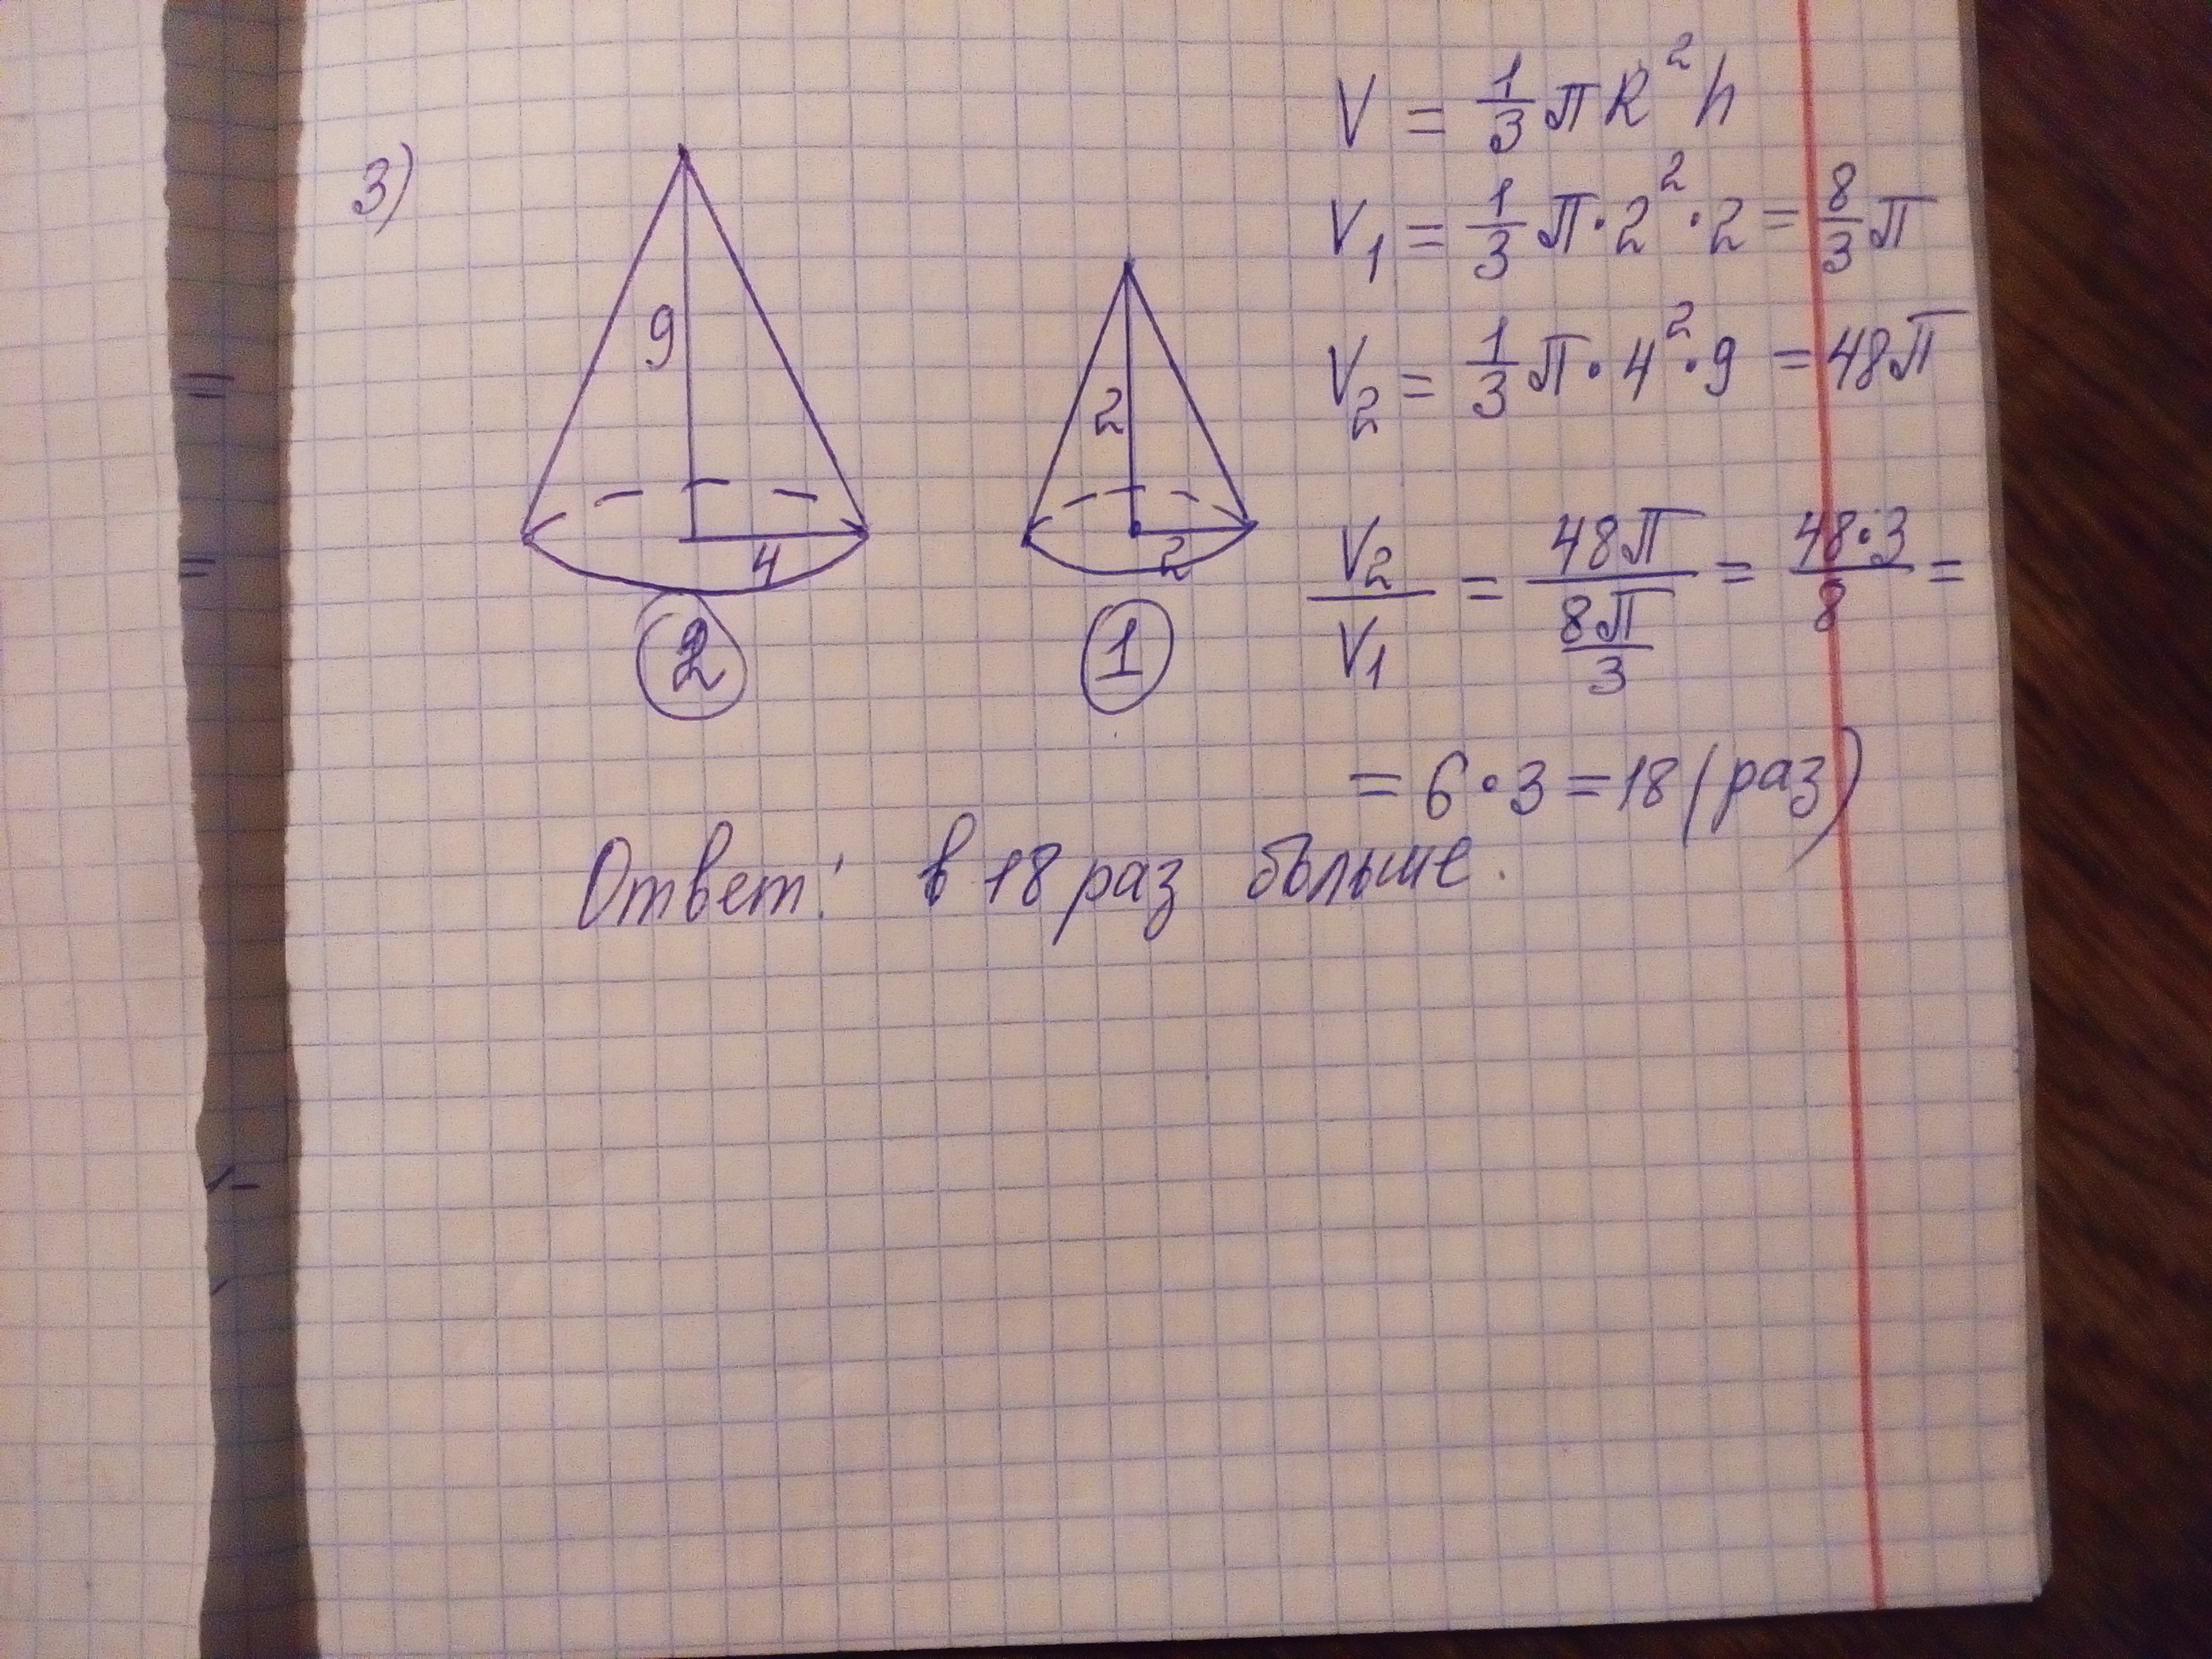 3)
9
4
2
2
2
1
V = 1/3 π R² h
V₁ = 1/3 π · 2² · 2 = 8/3 π
V₂ = 1/3 π · 4² · 9 = 48π
V₂/V₁ = 48π/(8π/3) = 48·3/8 =
= 6 · 3 = 18 (раз)
Ответ: в 18 раз больше.